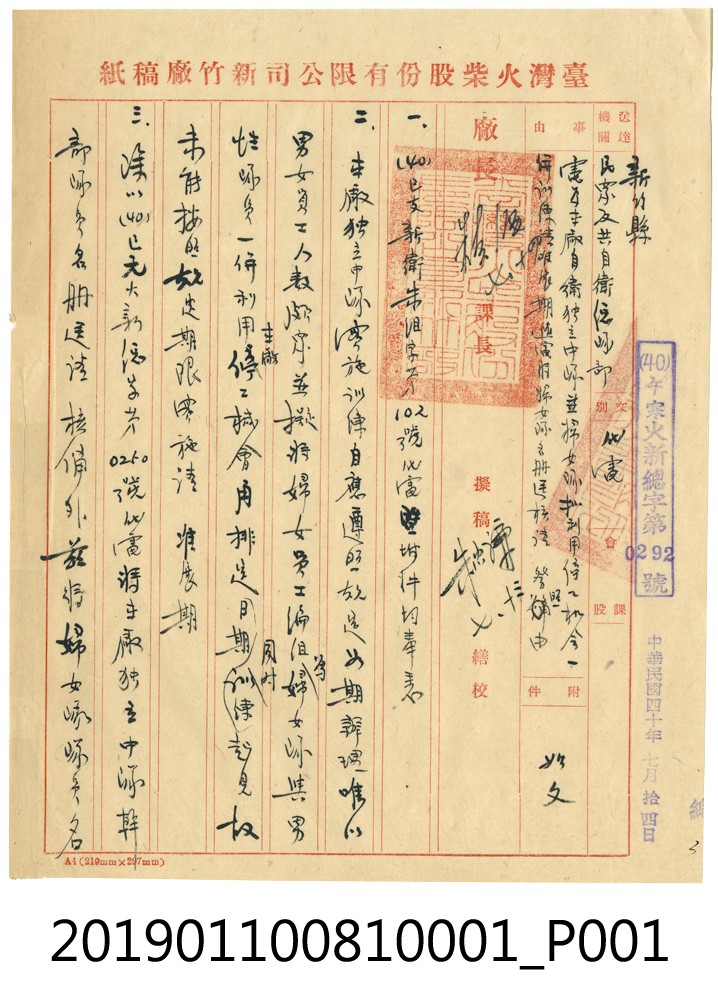 臺灣火柴股份有限公司新竹廠稿紙
送達機關
新竹縣
民眾反共自衛總隊部
文別
代電
會
課股
事由
電為本廠自衛獨立中隊並婦女隊擬利用停工機會一
併訓練請准展期檢電附婦女隊名冊送核請 督照由
附件
如文
廠長
課長
擬稿
繕校
一、(40)已支新衛朱組字第102號代電暨附件均奉悉
二、本廠獨立中隊實施訓練自應遵照規定如期辦理唯以
男女員工人數頗眾並擬將婦女員工編組為婦女隊與男
性隊員一併利用本廠停工機會再排定日期同時訓練起見故
未能按照規定期限實施請 准展期
三、除以(40)已元火新總字第0250號代電將本廠獨立中隊幹
部隊員名冊送請 核備外茲將婦女隊隊員名
(40)午寒火新總字第0292號
中華民國四十年七月拾四日
A4 (210mm×297mm)
201901100810001_P001